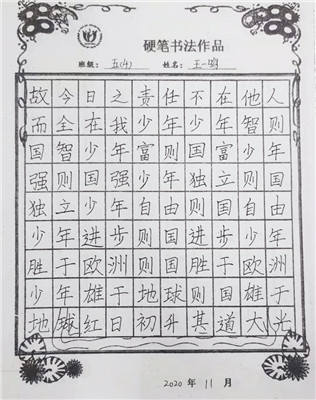 硬笔书法作品
班级：五(4) 姓名：王一鸣
故今日之责任不在他人
而全在我少年少年智则
国智少年富则国富少年
强则国强少年独立则国
独立少年自由则国自由
少年进步则国进步少年
胜于欧洲则国胜于欧洲
少年雄于地球则国雄于
地球红日初升其道大光
2020年11月